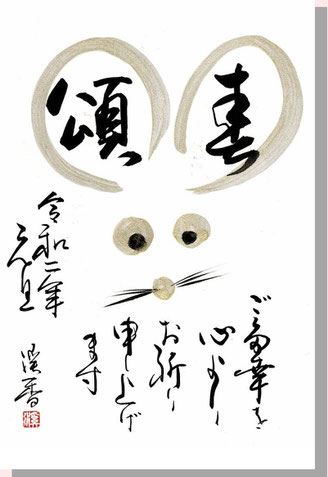 頌春
ご多幸を
心より
お祈り
申し上げ
ます
令和二年
元旦
溪香